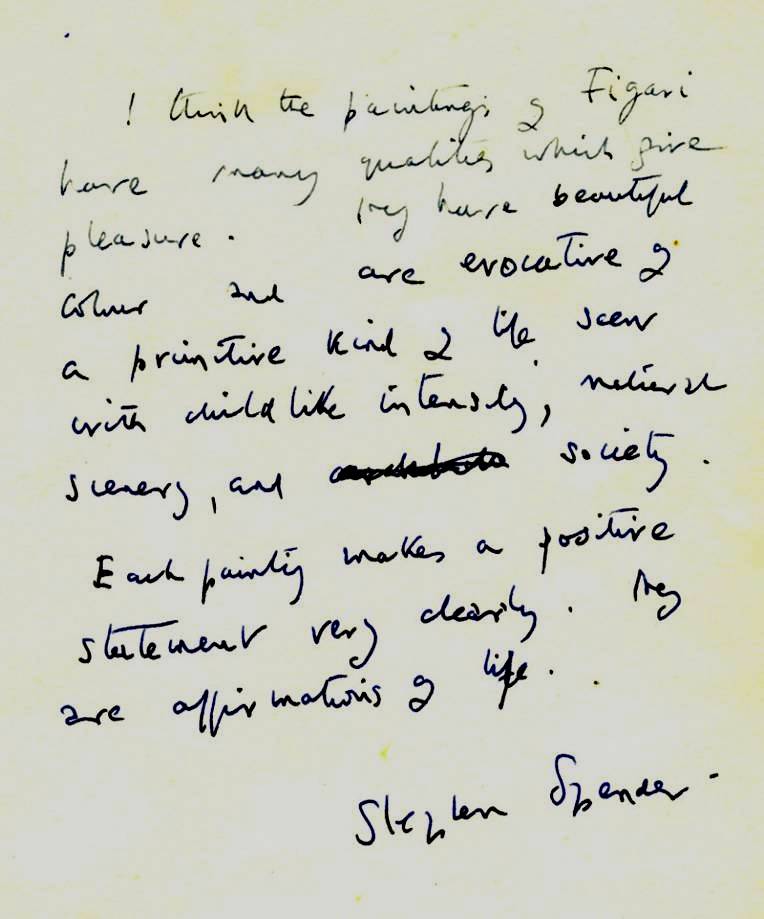 I think the paintings of Figari
have many qualities which give
pleasure. They have beautiful
colour and are evocative of
a primitive kind of life seen
with childlike intensity, natural
scenery, and society.
Each painting makes a positive
statement very clearly. They
are affirmations of life.
Stephen Spender